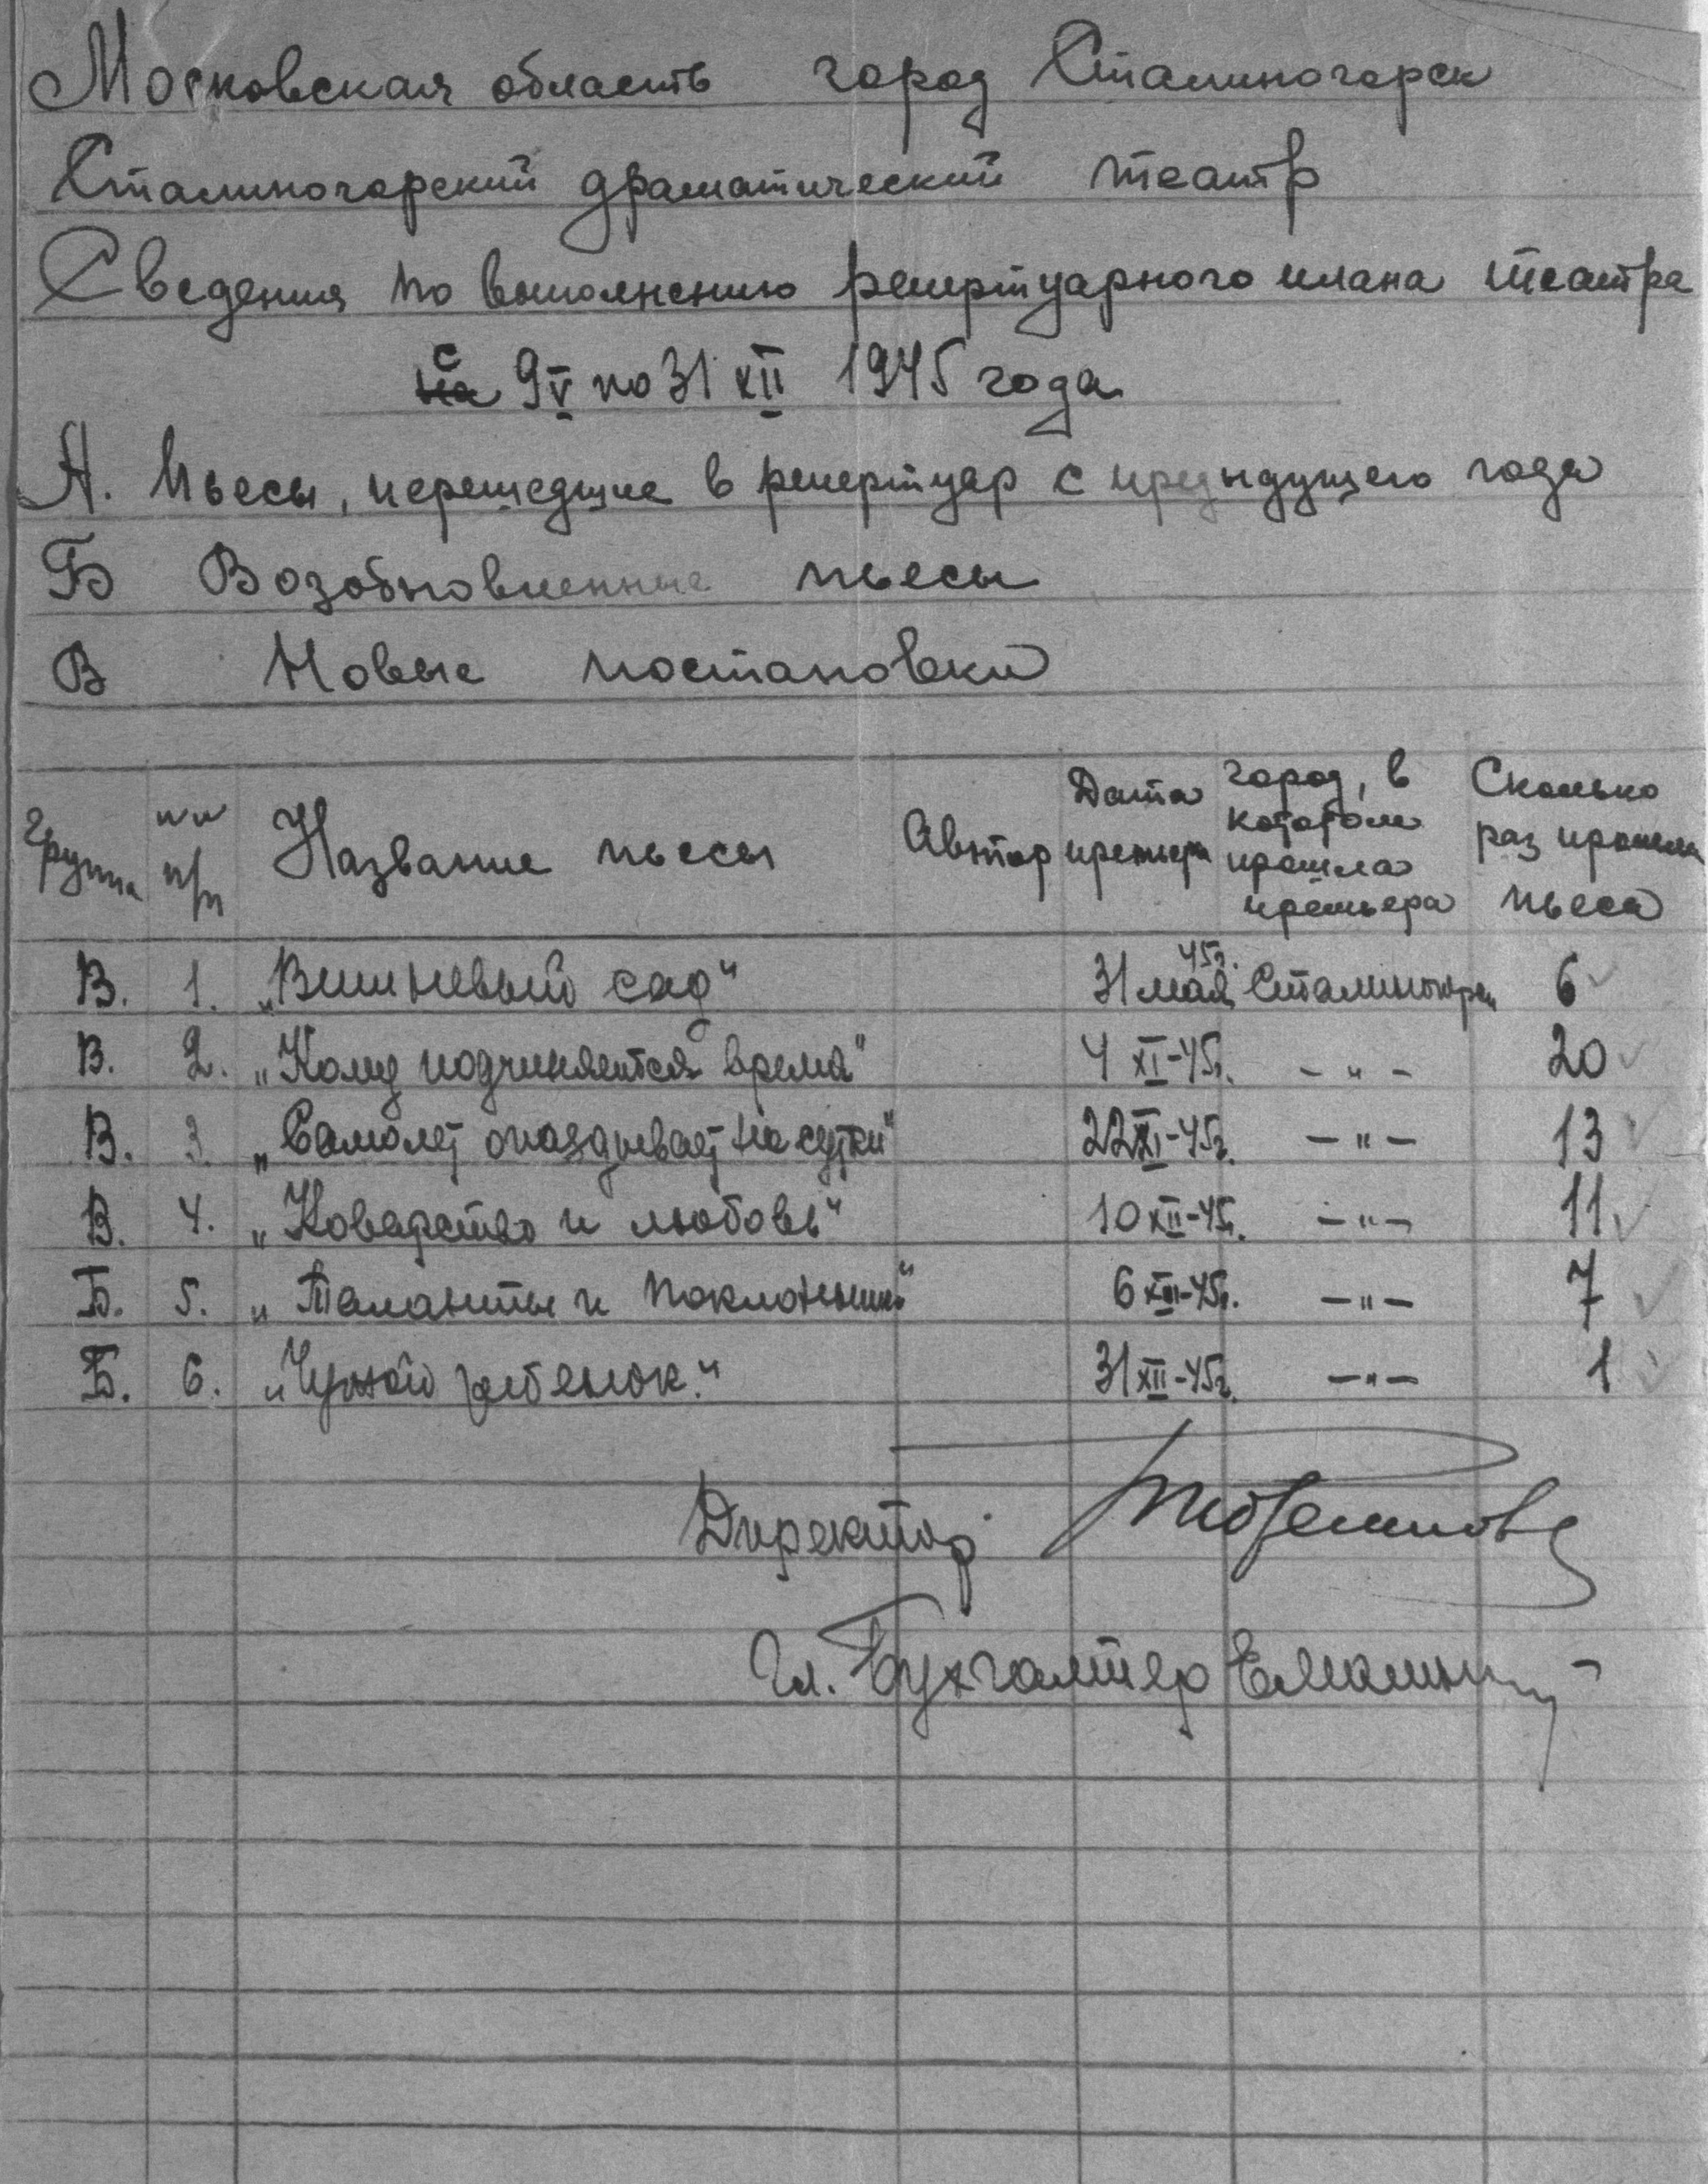 Московская область город Сталиногорск
Сталиногорский драматический театр
Сведения по выполнению репертуарного плана театра
с
на 9 V по 31 XII 1945 года
А. Пьесы, перешедшие в репертуар с предыдущего года
Б Возобновленные пьесы
В Новые постановки
Группа №№ п/п Название пьесы Автор Дата премьера город, в котором прошла премьера Сколько раз прошла пьеса
В. 1. „Вишневый сад" 31 мая 45г. Сталиногорск 6
В. 2. „Кому подчиняется время" 4 XI-45г. -"- 20
В. 3. „Самолет опаздывает на сутки" 22 XI-45г. -"- 13
В. 4. „Коварство и любовь" 10 XII-45г. -"- 11
Б. 5. „Таланты и поклонники" 6 XII-45г. -"- 7
Б. 6. „Чужой ребенок." 31 XII-45г. -"- 1
Директор
Гл. Бухгалтер